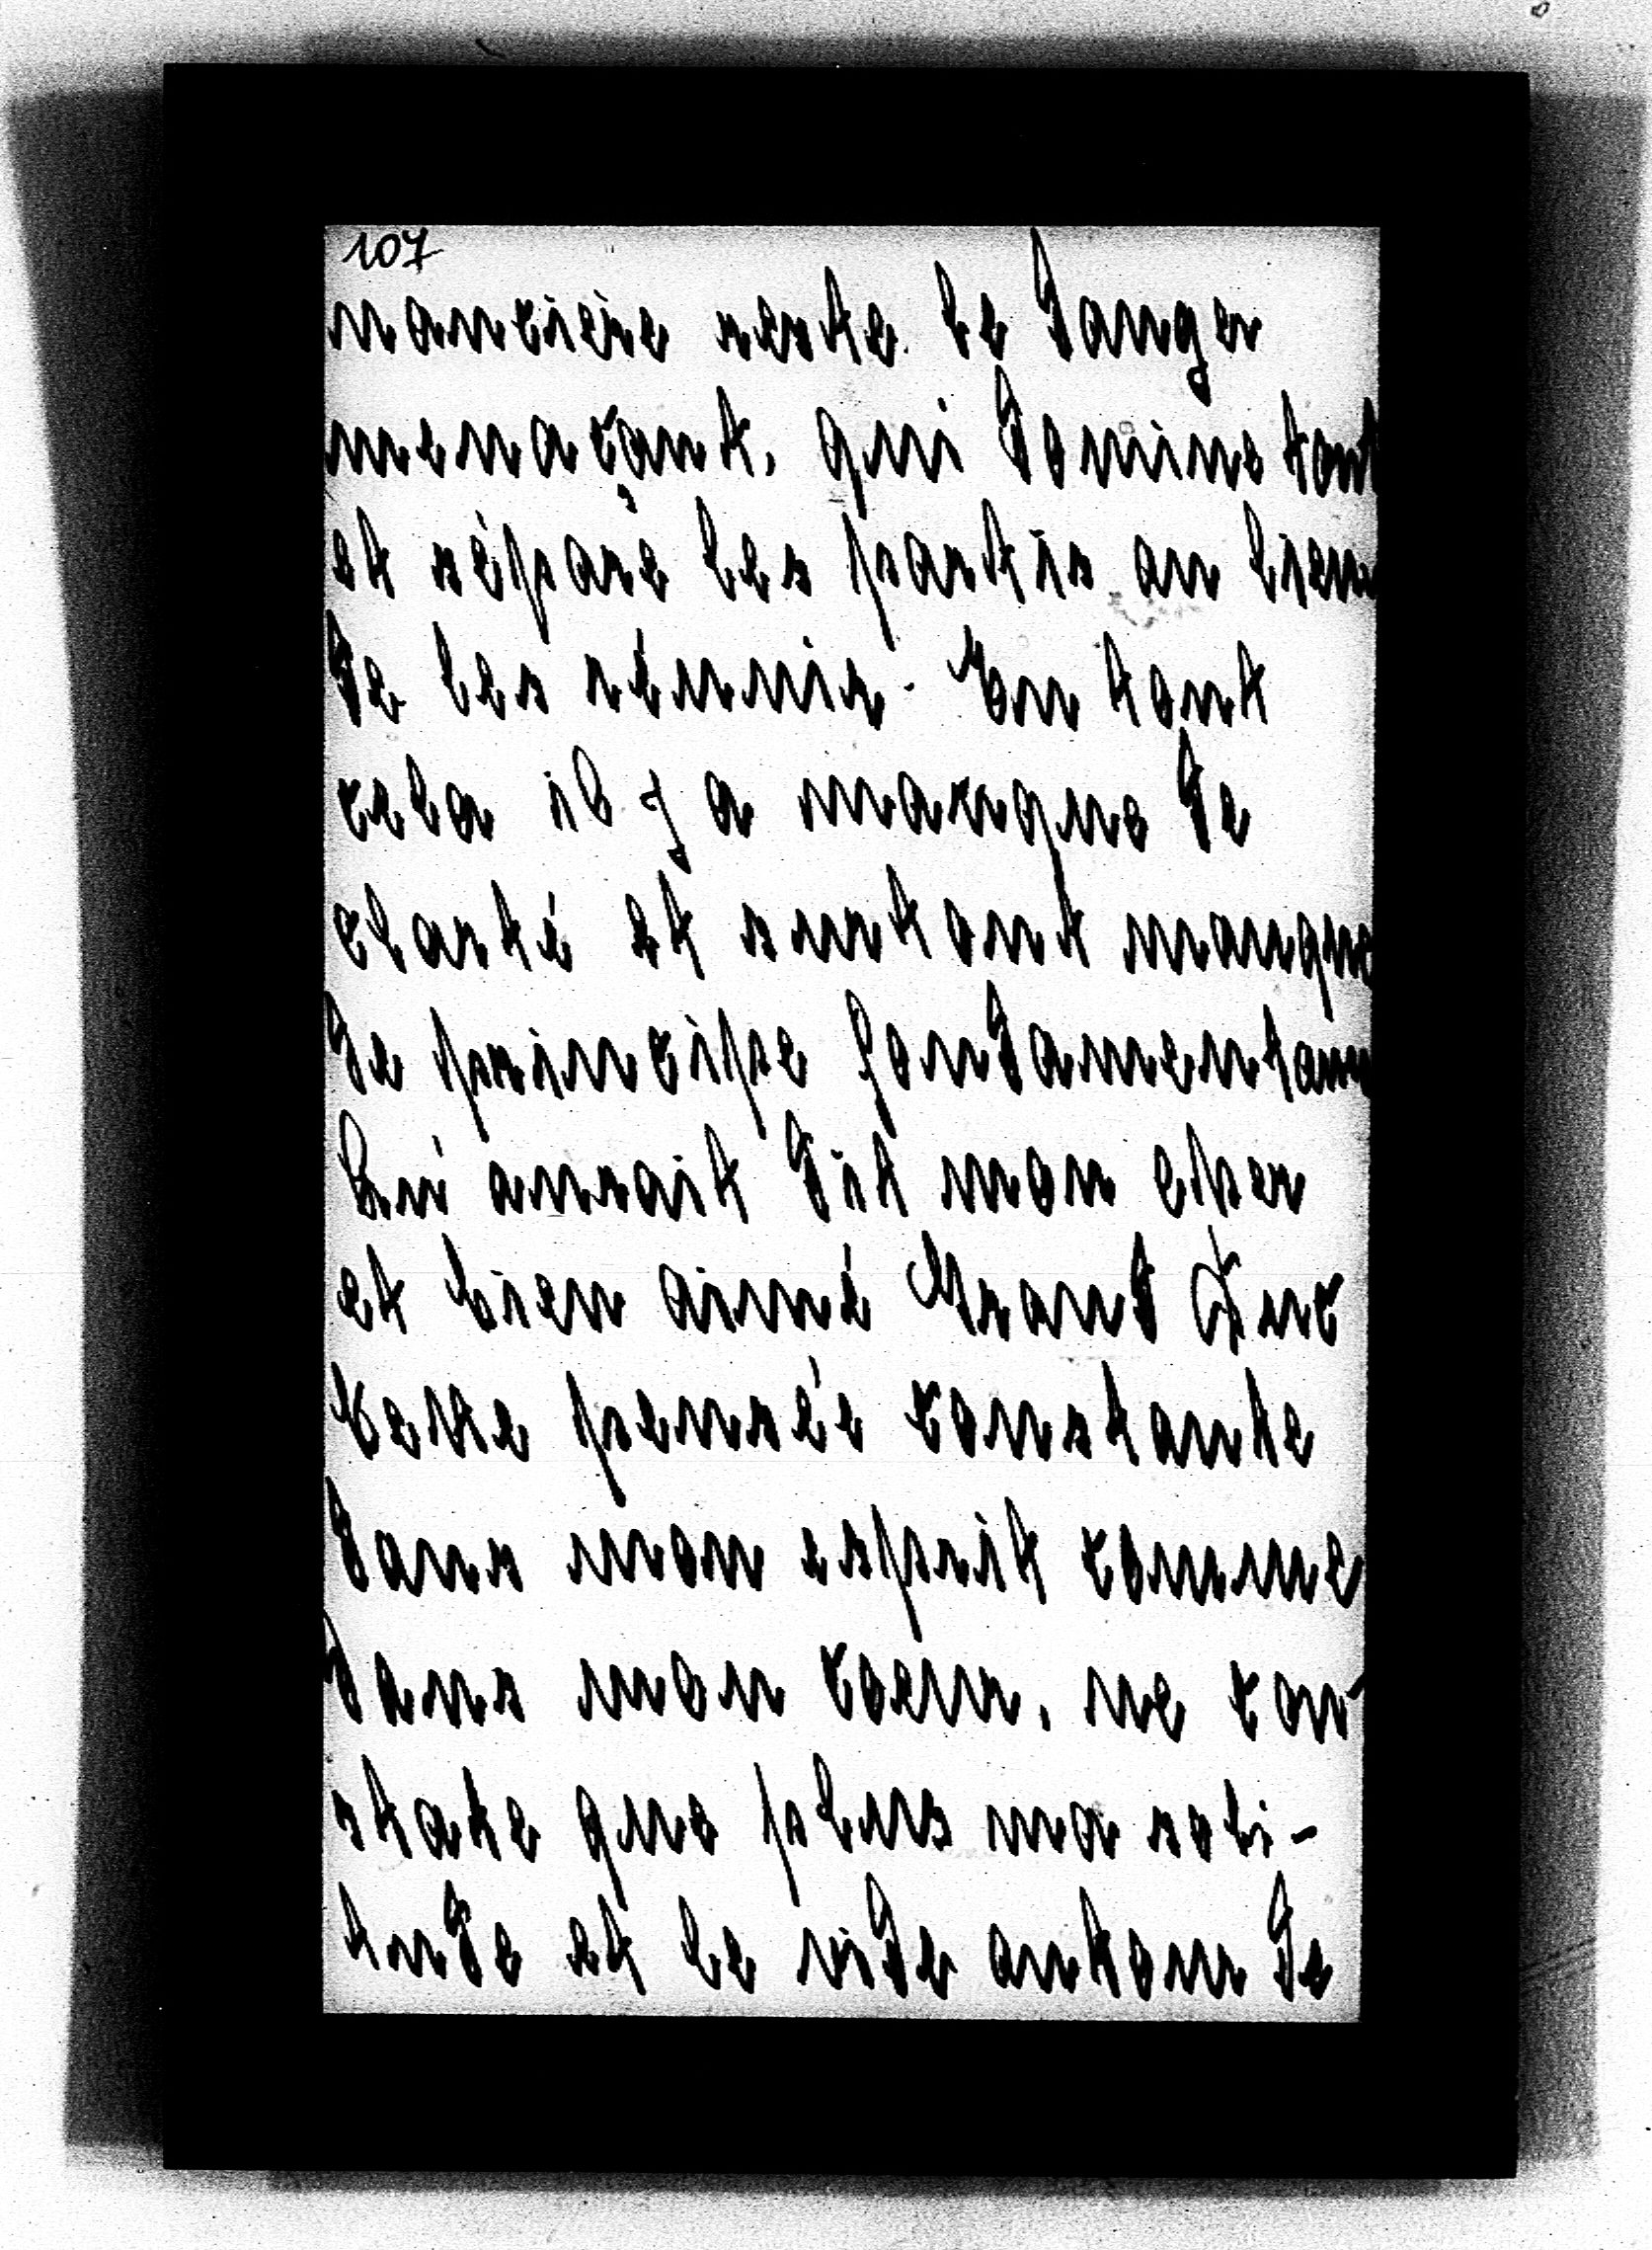 107
manciére reste le danger
menaçant, qui domine tout
et séparé les partis au lieu
de les réunir. En tout
cela il y a manque de
clarté et surtout manque
de principe fondamentaux
Lui aurait dit mon cher
et bien aimé Grand Duc
Cette pensée constante
dans mon esprit comme
dans mon coeur, ne con-
state que plus ma soli-
tude et le vide autour de